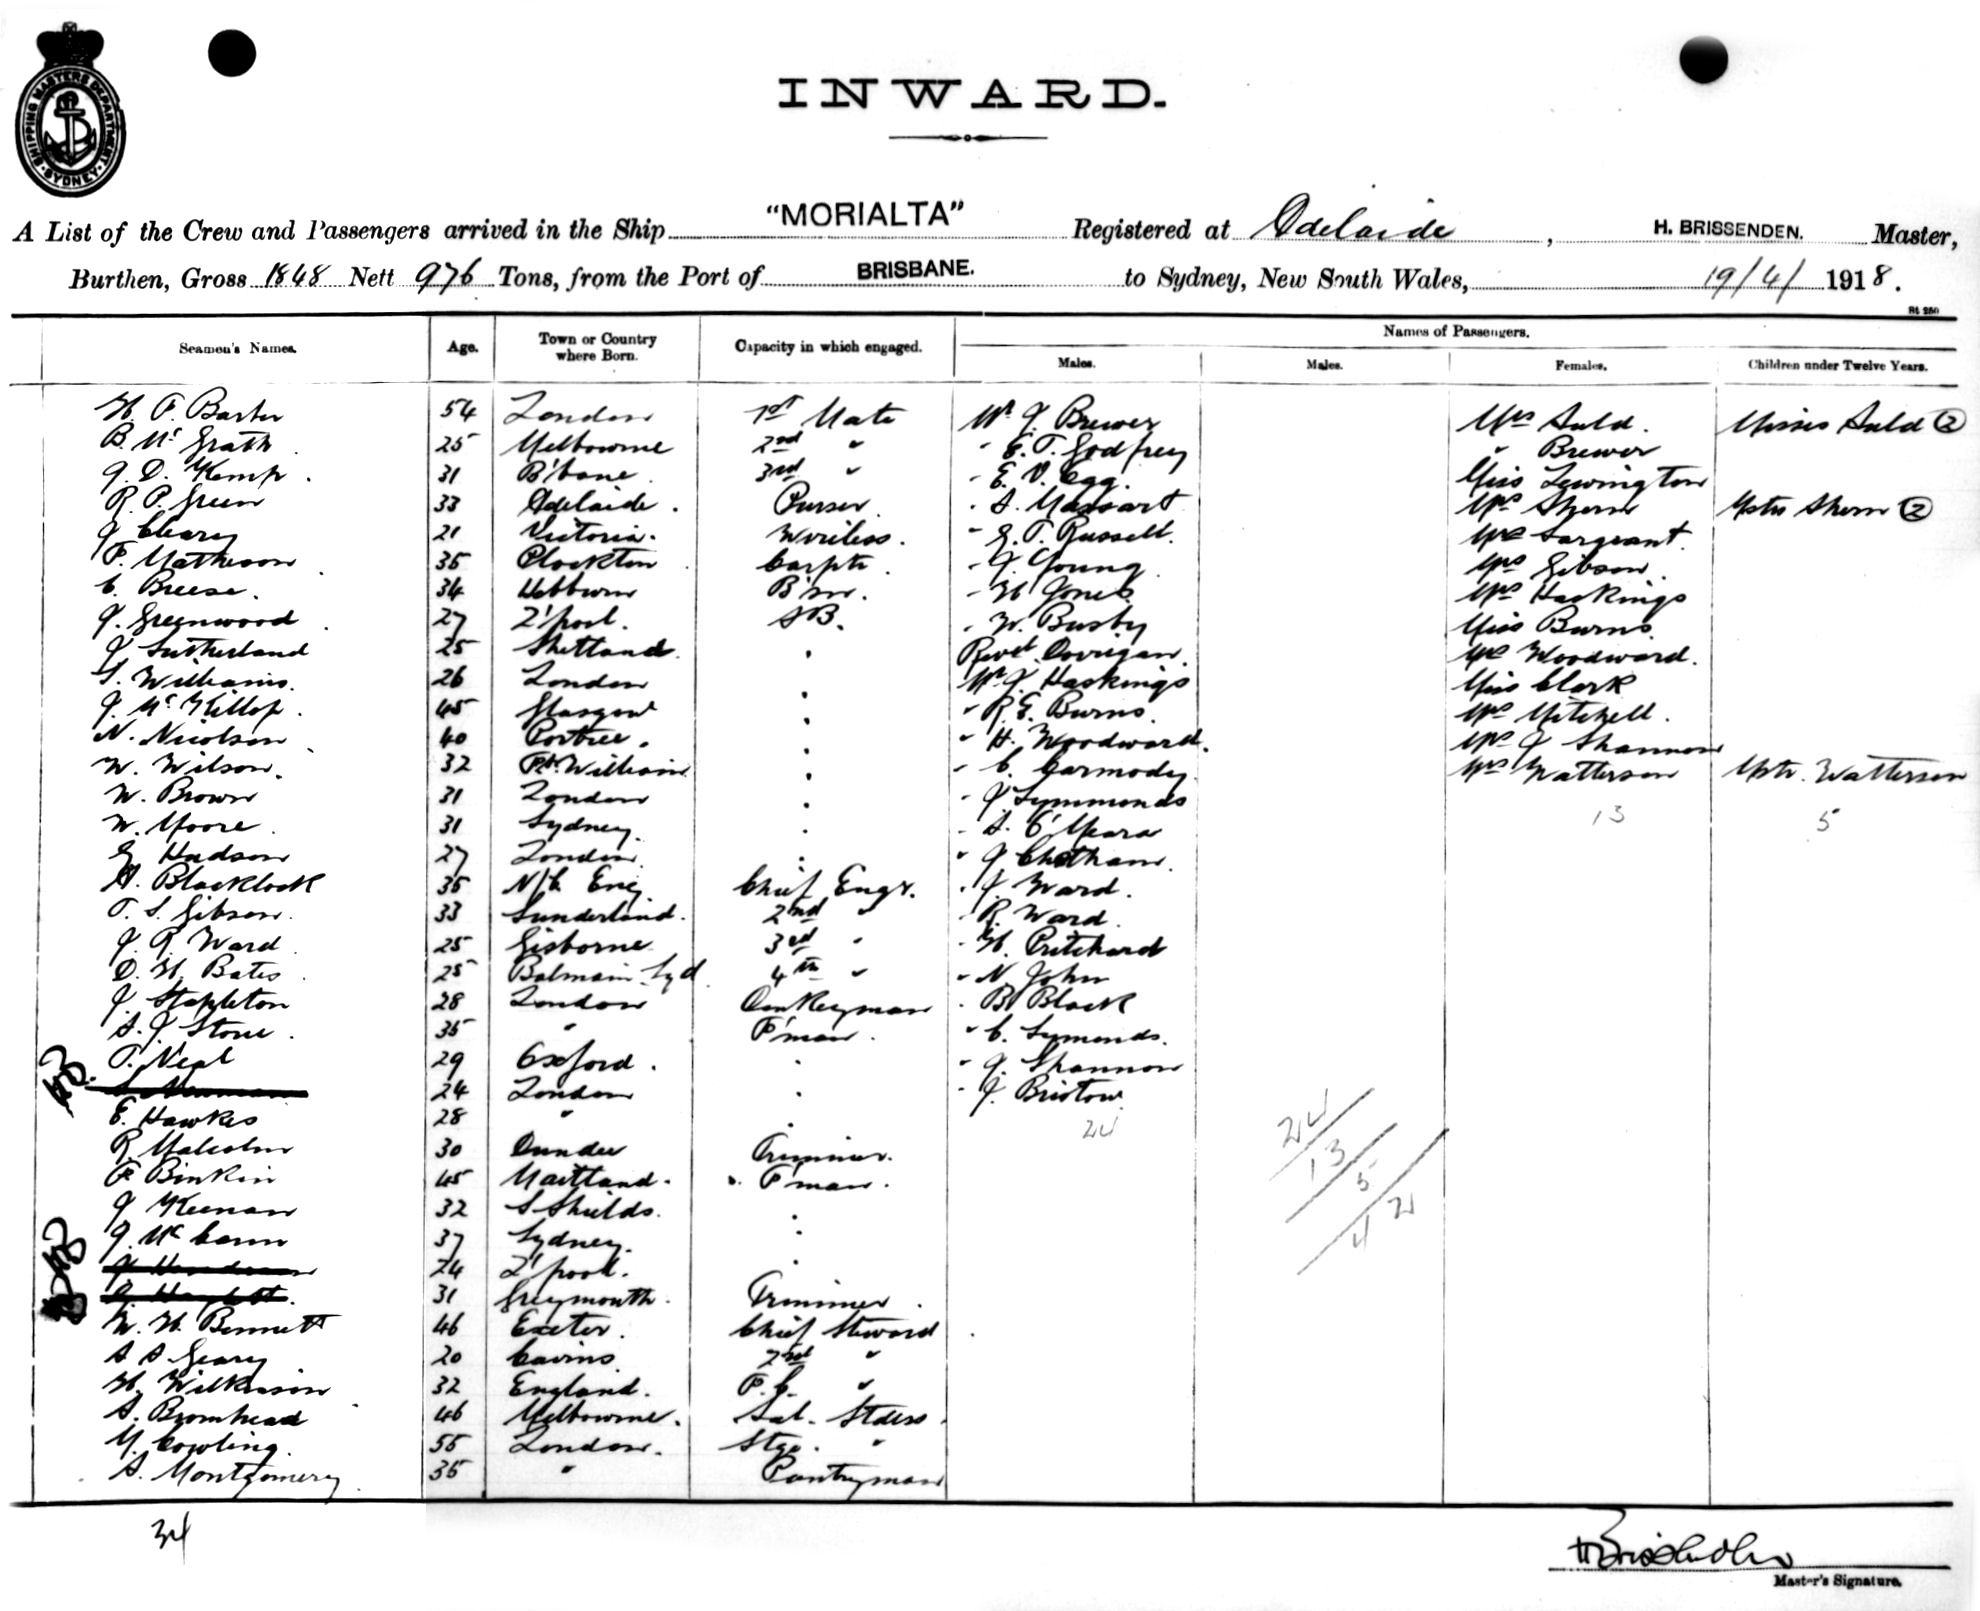 SHIPPING MASTERS DEPARTMENT
SYDNEY
INWARD.
A List of the Crew and Passengers arrived in the Ship "MORIALTA" Registered at Adelaide, H. BRISSENDEN. Master,
Burthen, Gross 1848 Nett 976 Tons, from the Port of BRISBANE. to Sydney, New South Wales, 19/4/1918.
St 250
Names of Passengers.
Seamen's Names. Age. Town or Country where Born. Capacity in which engaged. Males. Males. Females. Children under Twelve Years.
H. F. Barter 54 London 1st Mate Mr J Brewer Mrs Auld. Misses Auld (2)
B. McGrath 25 Melbourne 2nd " " E. T. Godfrey " Brewer
G. D. Kemp. 31 B'bane 3rd " " E. V. Egg. Miss Lewington
R. P. Green 33 Adelaide. Purser. " A. Massart Mrs Shern Mstrs Shern (2)
J Cleary 21 Victoria. Wireless. " G. T. Russell. Mrs Sargeant.
F. Matheson 35 Plockton Carptr. " J. Young Mrs Gibson.
C. Breese. 34 Hebburn B'sn. " H Jones Mrs Haskings
J. Greenwood 27 L'pool. AB. " W. Busby Miss Burns
J Sutherland 25 Shetland. " Revd. Corrigan. Mrs Woodward.
S. Williams. 26 London " Mr J. Haskings Miss Clark
J. McKillop. 45 Glasgow " " R. E. Burns. Mrs Mitchell.
N. Nicolson 40 Portree. " " H. Woodward. Mrs J Shannon
W. Wilson. 32 Ft. William " " C. Carmody. Mrs Watterson Mstr. Watterson
W. Brown 31 London " " J Symmonds 13 5
W. Moore. 31 Sydney. " " A. O'Meara
G Hudson 27 London. " " J Chetham.
H. Blacklock 35 N/C Eng Chief Engr. " J. Ward.
T. S. Gibson. 33 Sunderland. 2nd " " R. Ward.
J. R. Ward 25 Gisborne 3rd " " H. Pritchard
D. H. Bates 25 Balmain Syd. 4th " " N John
J Stapleton 28 London Donkeyman " B. Black
A. J. Stone. 35 " F'man. " C. Symonds.
T. Neal 29 Oxford. " " J. Shannon
24 London " " J Bristow.
E. Hawkes 28 " " 24
R. Malcolm 30 Dundee Trimmer. 24
F Binkin 45 Maitland. F'man. 13
J Keenan 32 S Shields. " 5
J. McCann 37 Sydney. " 42
24 L'pool. "
31 Greymouth. Trimmer.
W. H. Bennett 46 Exeter. Chief Steward
A A Geary 20 Cairns. 2nd "
H. Wilkinson 32 England. F.C. "
A. Bromhead 46 Melbourne. Sal. Stdess.
M. Cowling. 55 London. Stge. "
A. Montgomery 35 " Pantryman
34
H Brissenden
Master's Signature.